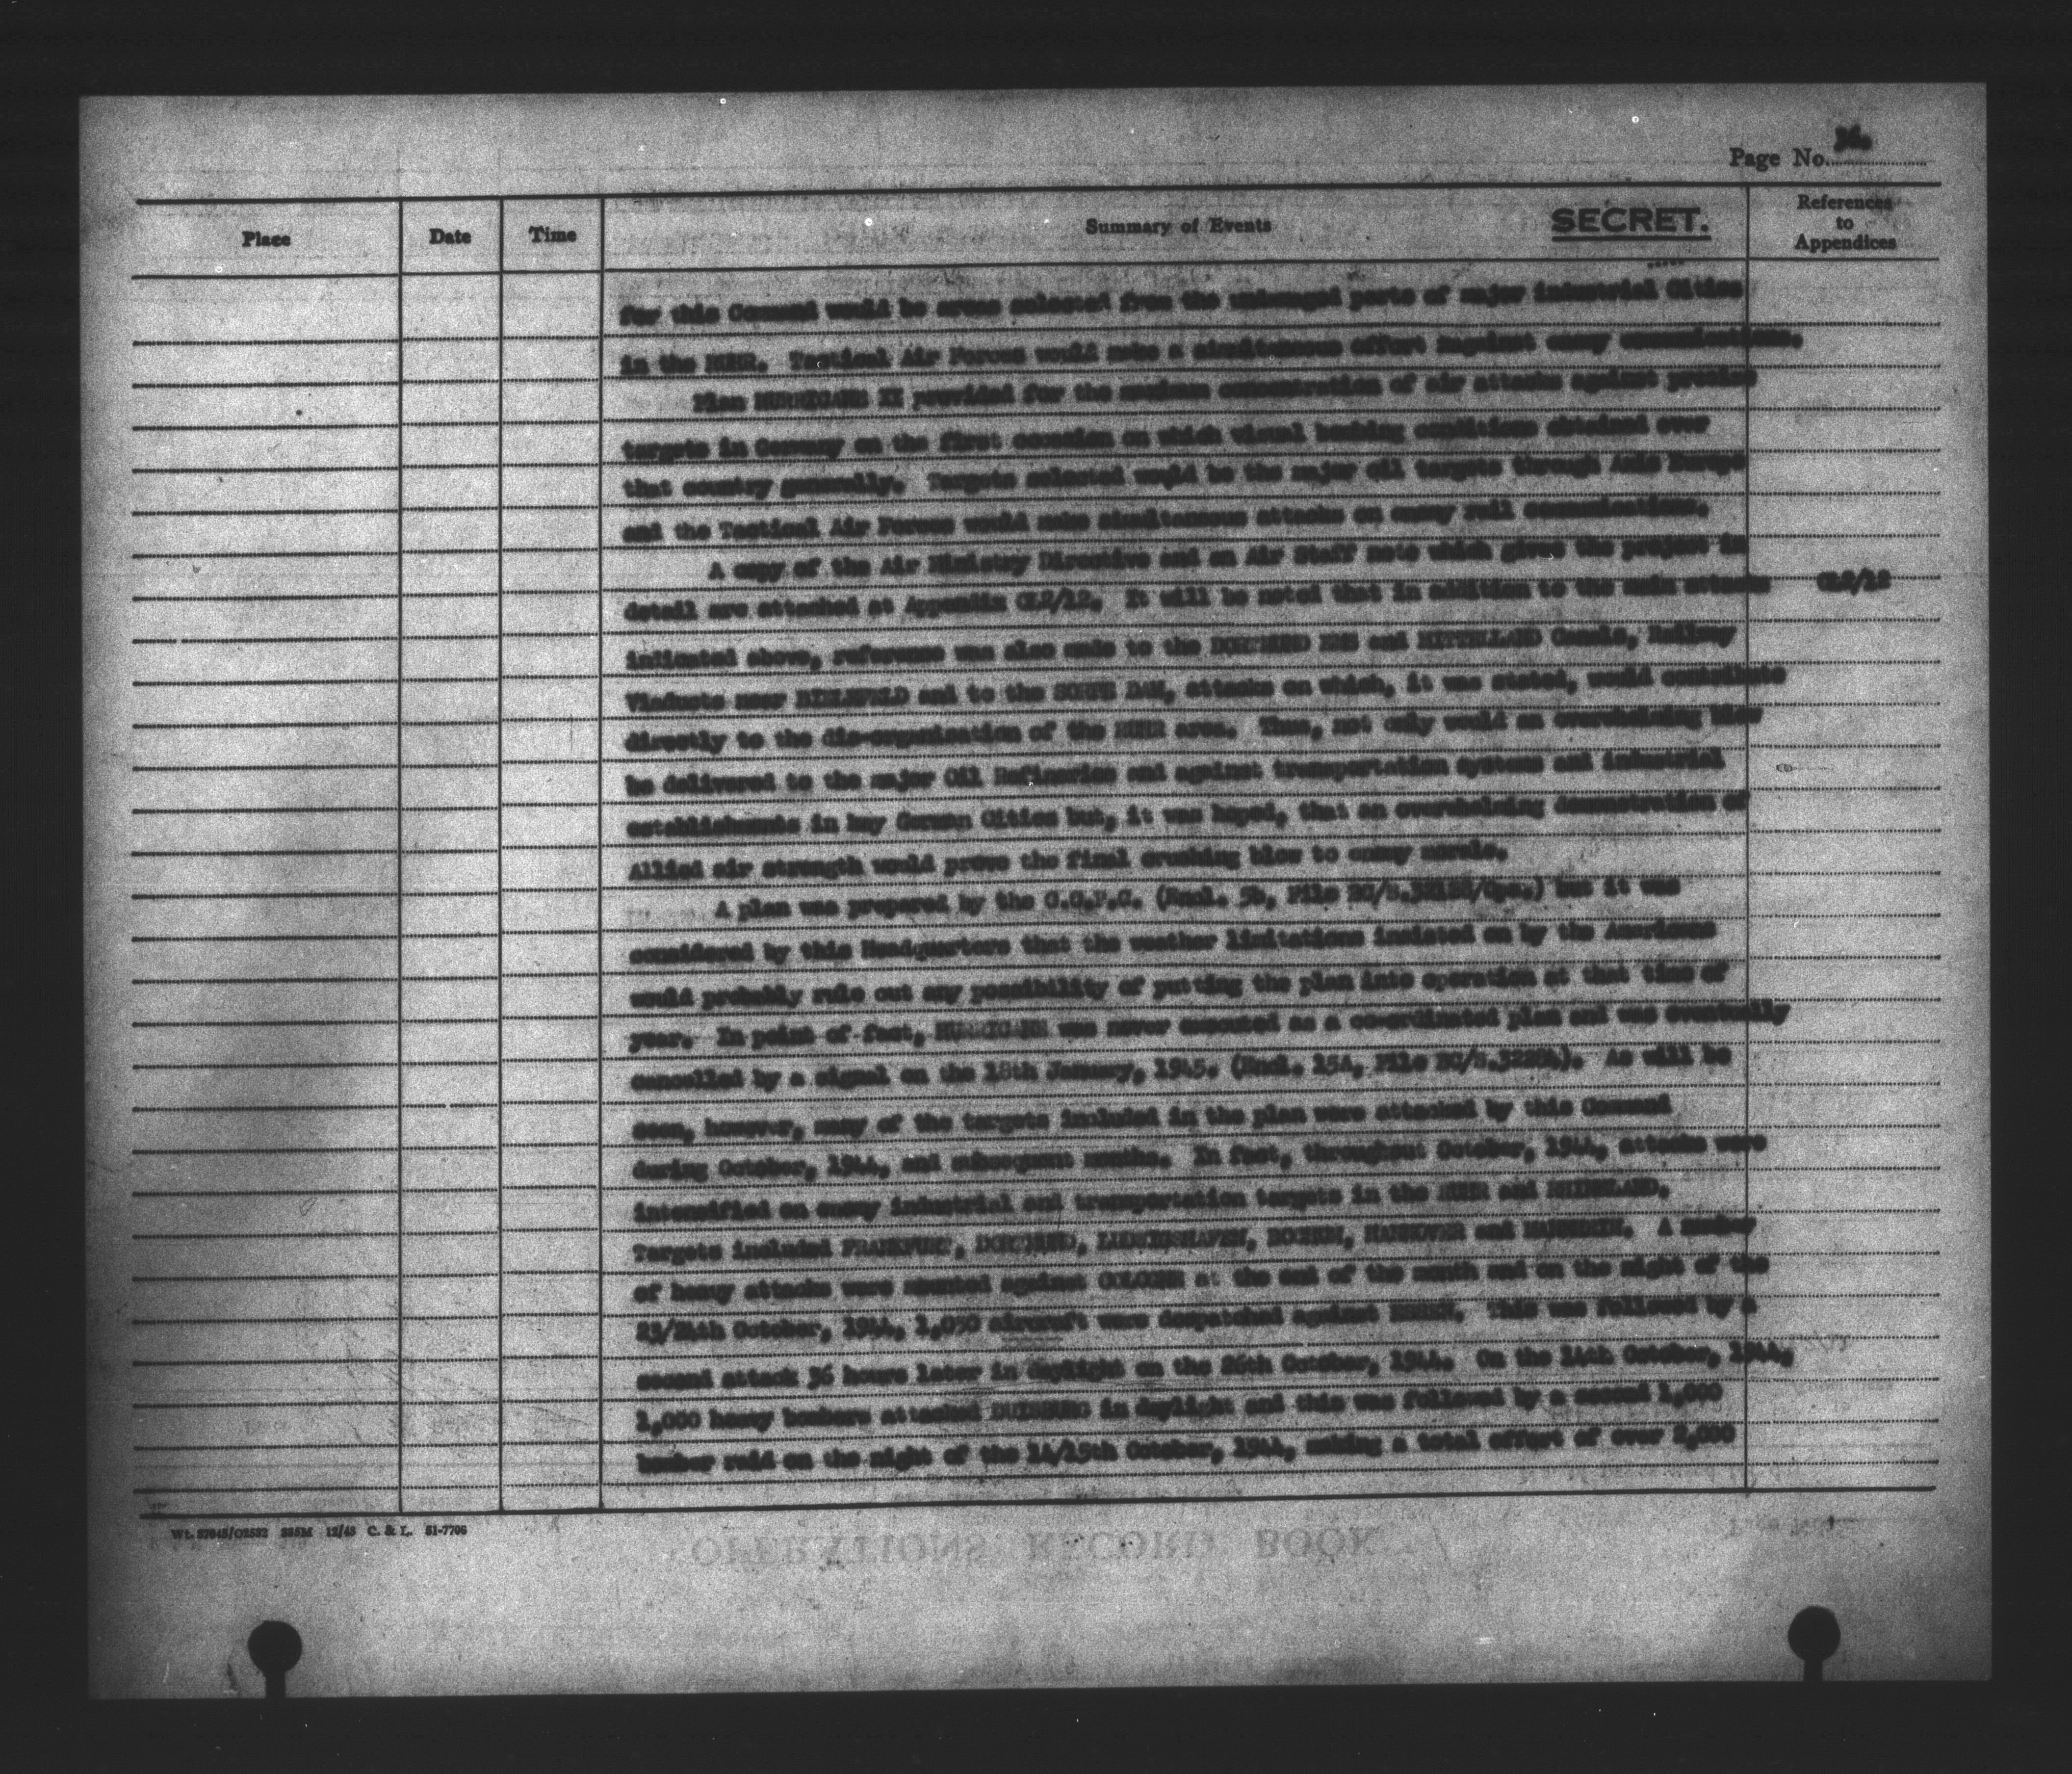 Page No. 36.
Place
Date
Time
Summary of Events
SECRET.
References
to
Appendices
for this Command would be areas selected from the undamaged parts of major industrial Cities
in the RUHR. Tactical Air Forces would make a simultaneous effort against enemy communications.
Plan HURRICANE II provided for the maximum concentration of air attacks against precise
targets in Germany on the first occasion on which visual bombing conditions obtained over
that country generally. Targets selected would be the major oil targets through Axis Europe
and the Tactical Air Forces would make simultaneous attacks on enemy rail communications.
A copy of the Air Ministry Directive and an Air Staff note which gives the project in
detail are attached at Appendix CL2/12. It will be noted that in addition to the main attacks
CL2/12
indicated above, reference was also made to the DORTMUND EMS and MITTELLAND Canals, Railway
Viaducts near BIELEFELD and to the SORPE DAM, attacks on which, it was stated, would contribute
directly to the dis-organisation of the RUHR area. Thus, not only would an overwhelming blow
be delivered to the major Oil Refineries and against transportation systems and industrial
establishments in key German Cities but, it was hoped, that an overwhelming demonstration of
Allied air strength would prove the final crushing blow to enemy morale.
A plan was prepared by the C.C.P.C. (Encl. 5b, File BC/S.32128/Ops.) but it was
considered by this Headquarters that the weather limitations insisted on by the Americans
would probably rule out any possibility of putting the plan into operation at that time of
year. In point of fact, HURRICANE was never executed as a co-ordinated plan and was eventually
cancelled by a signal on the 18th January, 1945. (Encl. 15A, File BC/S.32284). As will be
seen, however, many of the targets included in the plan were attacked by this Command
during October, 1944, and subsequent months. In fact, throughout October, 1944, attacks were
intensified on enemy industrial and transportation targets in the RUHR and RHINELAND.
Targets included FRANKFURT, DORTMUND, LUDWIGSHAFEN, BOCHUM, HANNOVER and MANNHEIM. A number
of heavy attacks were mounted against COLOGNE at the end of the month and on the night of the
23/24th October, 1944, 1,050 aircraft were despatched against ESSEN. This was followed by a
second attack 36 hours later in daylight on the 26th October, 1944. On the 14th October, 1944,
1,000 heavy bombers attacked DUISBURG in daylight and this was followed by a second 1,000
bomber raid on the night of the 14/15th October, 1944, making a total effort of over 2,000
Wt. 57045/O2532 335M 12/43 C. & L. 51-7706
OPERATIONS RECORD BOOK